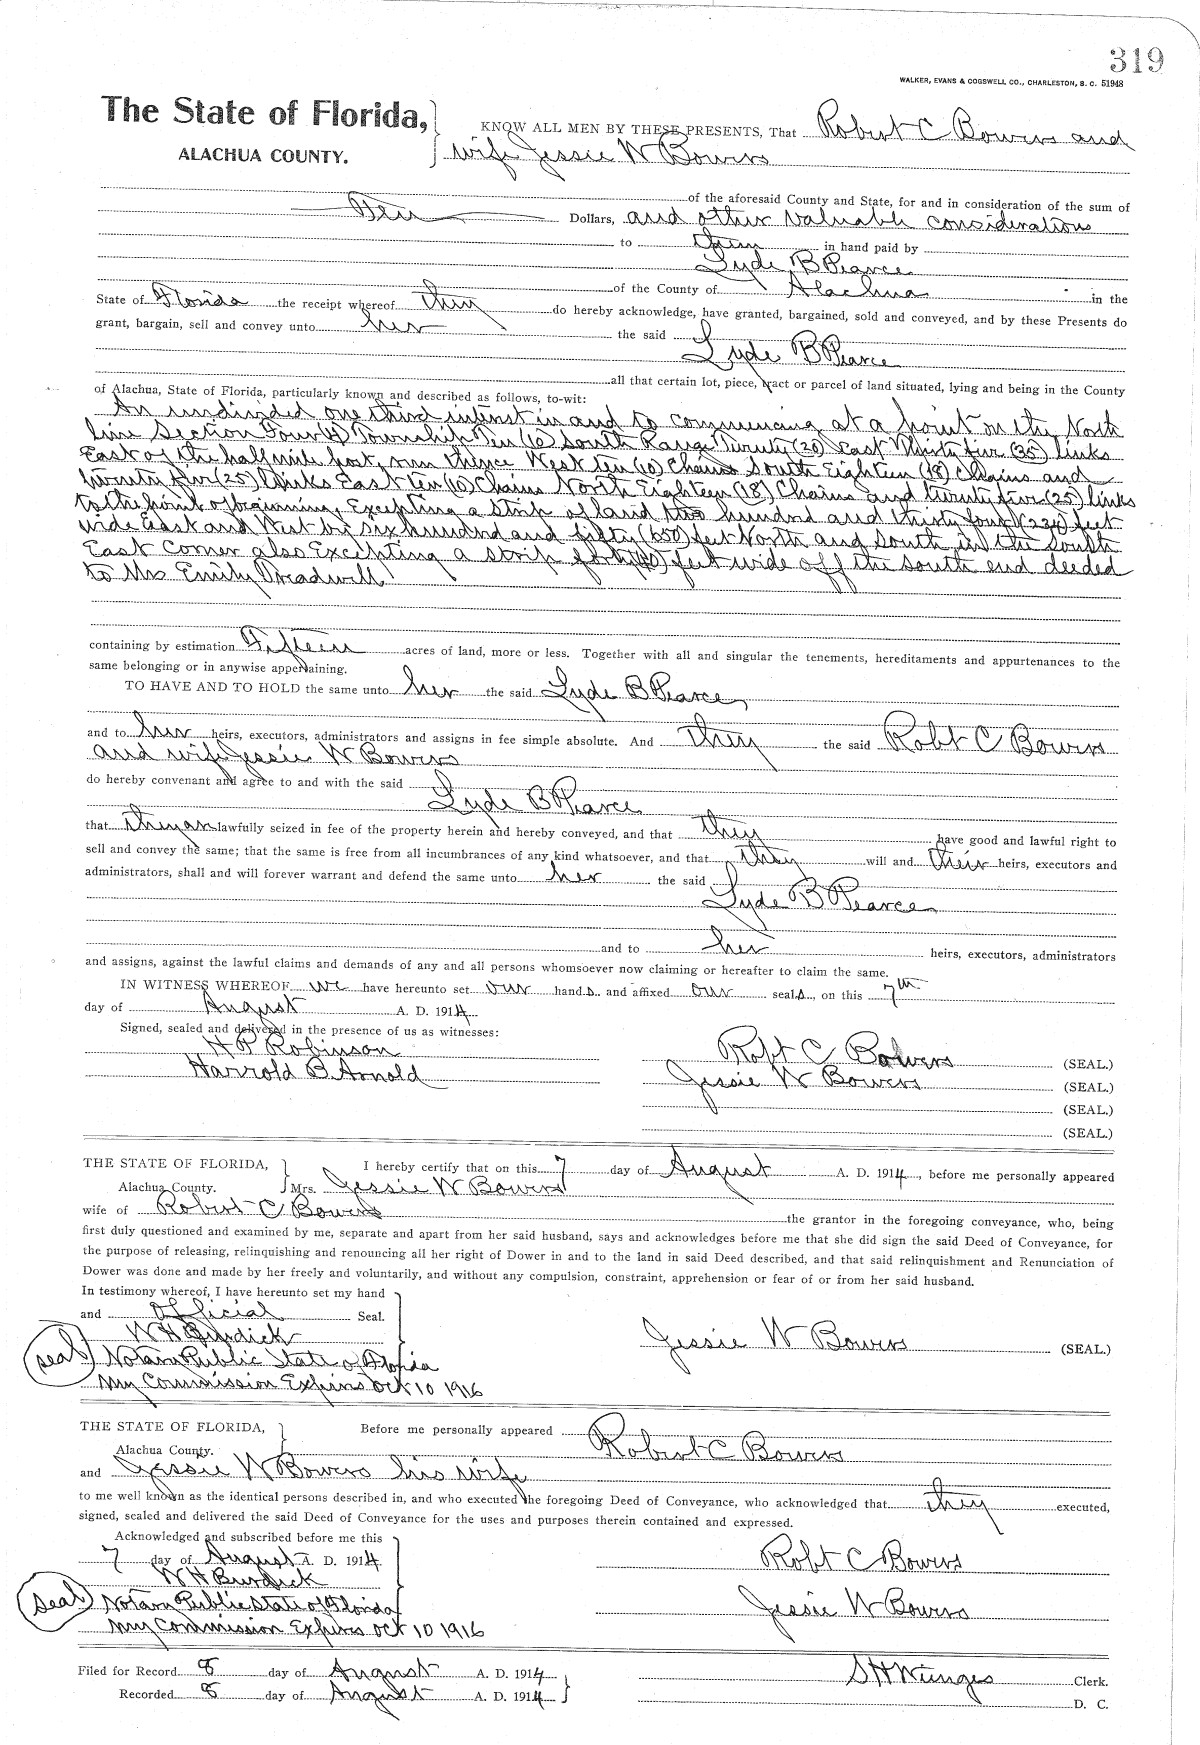 319
WALKER, EVANS & COGSWELL CO., CHARLESTON, S. C. 51948
The State of Florida,
ALACHUA COUNTY.
KNOW ALL MEN BY THESE PRESENTS, That Robert C Bowers and
wife Jessie W Bowers
of the aforesaid County and State, for and in consideration of the sum of
Ten Dollars, and other valuable considerations
to them in hand paid by
Lyde B Pearce
of the County of Alachua in the
State of Florida the receipt whereof they do hereby acknowledge, have granted, bargained, sold and conveyed, and by these Presents do
grant, bargain, sell and convey unto her the said
Lyde B Pearce
all that certain lot, piece, tract or parcel of land situated, lying and being in the County
of Alachua, State of Florida, particularly known and described as follows, to-wit:
An undivided one third interest in and to commencing at a point on the North
line Section Four (4) Township Ten (10) South Range Twenty (20) East Thirty five (35) links
East of the half mile post, run thence West ten (10) Chains South Eighteen (18) Chains and
twenty five (25) links East ten (10) Chains North Eighteen (18) Chains and twenty five (25) links
to the point of beginning, Excepting a strip of land two hundred and thirty four (234) feet
wide East and West by six hundred and fifty (650) feet North and South in the South
East Corner also Excepting a strip forty (40) feet wide off the south end deeded
to Mrs Emily Treadwell
containing by estimation Fifteen acres of land, more or less. Together with all and singular the tenements, hereditaments and appurtenances to the
same belonging or in anywise appertaining.
TO HAVE AND TO HOLD the same unto her the said Lyde B Pearce,
and to her heirs, executors, administrators and assigns in fee simple absolute. And they the said Robt C Bowers
and wife Jessie W Bowers
do hereby convenant and agree to and with the said
Lyde B Pearce
that they are lawfully seized in fee of the property herein and hereby conveyed, and that they have good and lawful right to
sell and convey the same; that the same is free from all incumbrances of any kind whatsoever, and that they will and their heirs, executors and
administrators, shall and will forever warrant and defend the same unto her the said
Lyde B Pearce
and to her heirs, executors, administrators
and assigns, against the lawful claims and demands of any and all persons whomsoever now claiming or hereafter to claim the same.
IN WITNESS WHEREOF we have hereunto set our hands and affixed our seals, on this 7th
day of August A. D. 1914
Signed, sealed and delivered in the presence of us as witnesses:
H P Robinson
Harrold B Arnold
Robt C Bowers (SEAL.)
Jessie W Bowers (SEAL.)
(SEAL.)
(SEAL.)
THE STATE OF FLORIDA,
Alachua County.
I hereby certify that on this 7 day of August A. D. 1914, before me personally appeared
Mrs. Jessie W Bowers
wife of Robert C Bowers the grantor in the foregoing conveyance, who, being
first duly questioned and examined by me, separate and apart from her said husband, says and acknowledges before me that she did sign the said Deed of Conveyance, for
the purpose of releasing, relinquishing and renouncing all her right of Dower in and to the land in said Deed described, and that said relinquishment and Renunciation of
Dower was done and made by her freely and voluntarily, and without any compulsion, constraint, apprehension or fear of or from her said husband.
In testimony whereof, I have hereunto set my hand
and official Seal.
W H Burdick
seal Notary Public State of Florida
My Commission Expires Oct 10 1916
Jessie W Bowers (SEAL.)
THE STATE OF FLORIDA,
Alachua County.
Before me personally appeared Robert C Bowers
and Jessie W Bowers his wife
to me well known as the identical persons described in, and who executed the foregoing Deed of Conveyance, who acknowledged that they executed,
signed, sealed and delivered the said Deed of Conveyance for the uses and purposes therein contained and expressed.
Acknowledged and subscribed before me this
7 day of August A. D. 1914
W H Burdick
Seal Notary Public State of Florida
My Commission Expires Oct 10 1916
Robt C Bowers
Jessie W Bowers
Filed for Record 8 day of August A. D. 1914
Recorded 8 day of August A. D. 1914
S H Wienges Clerk.
D. C.